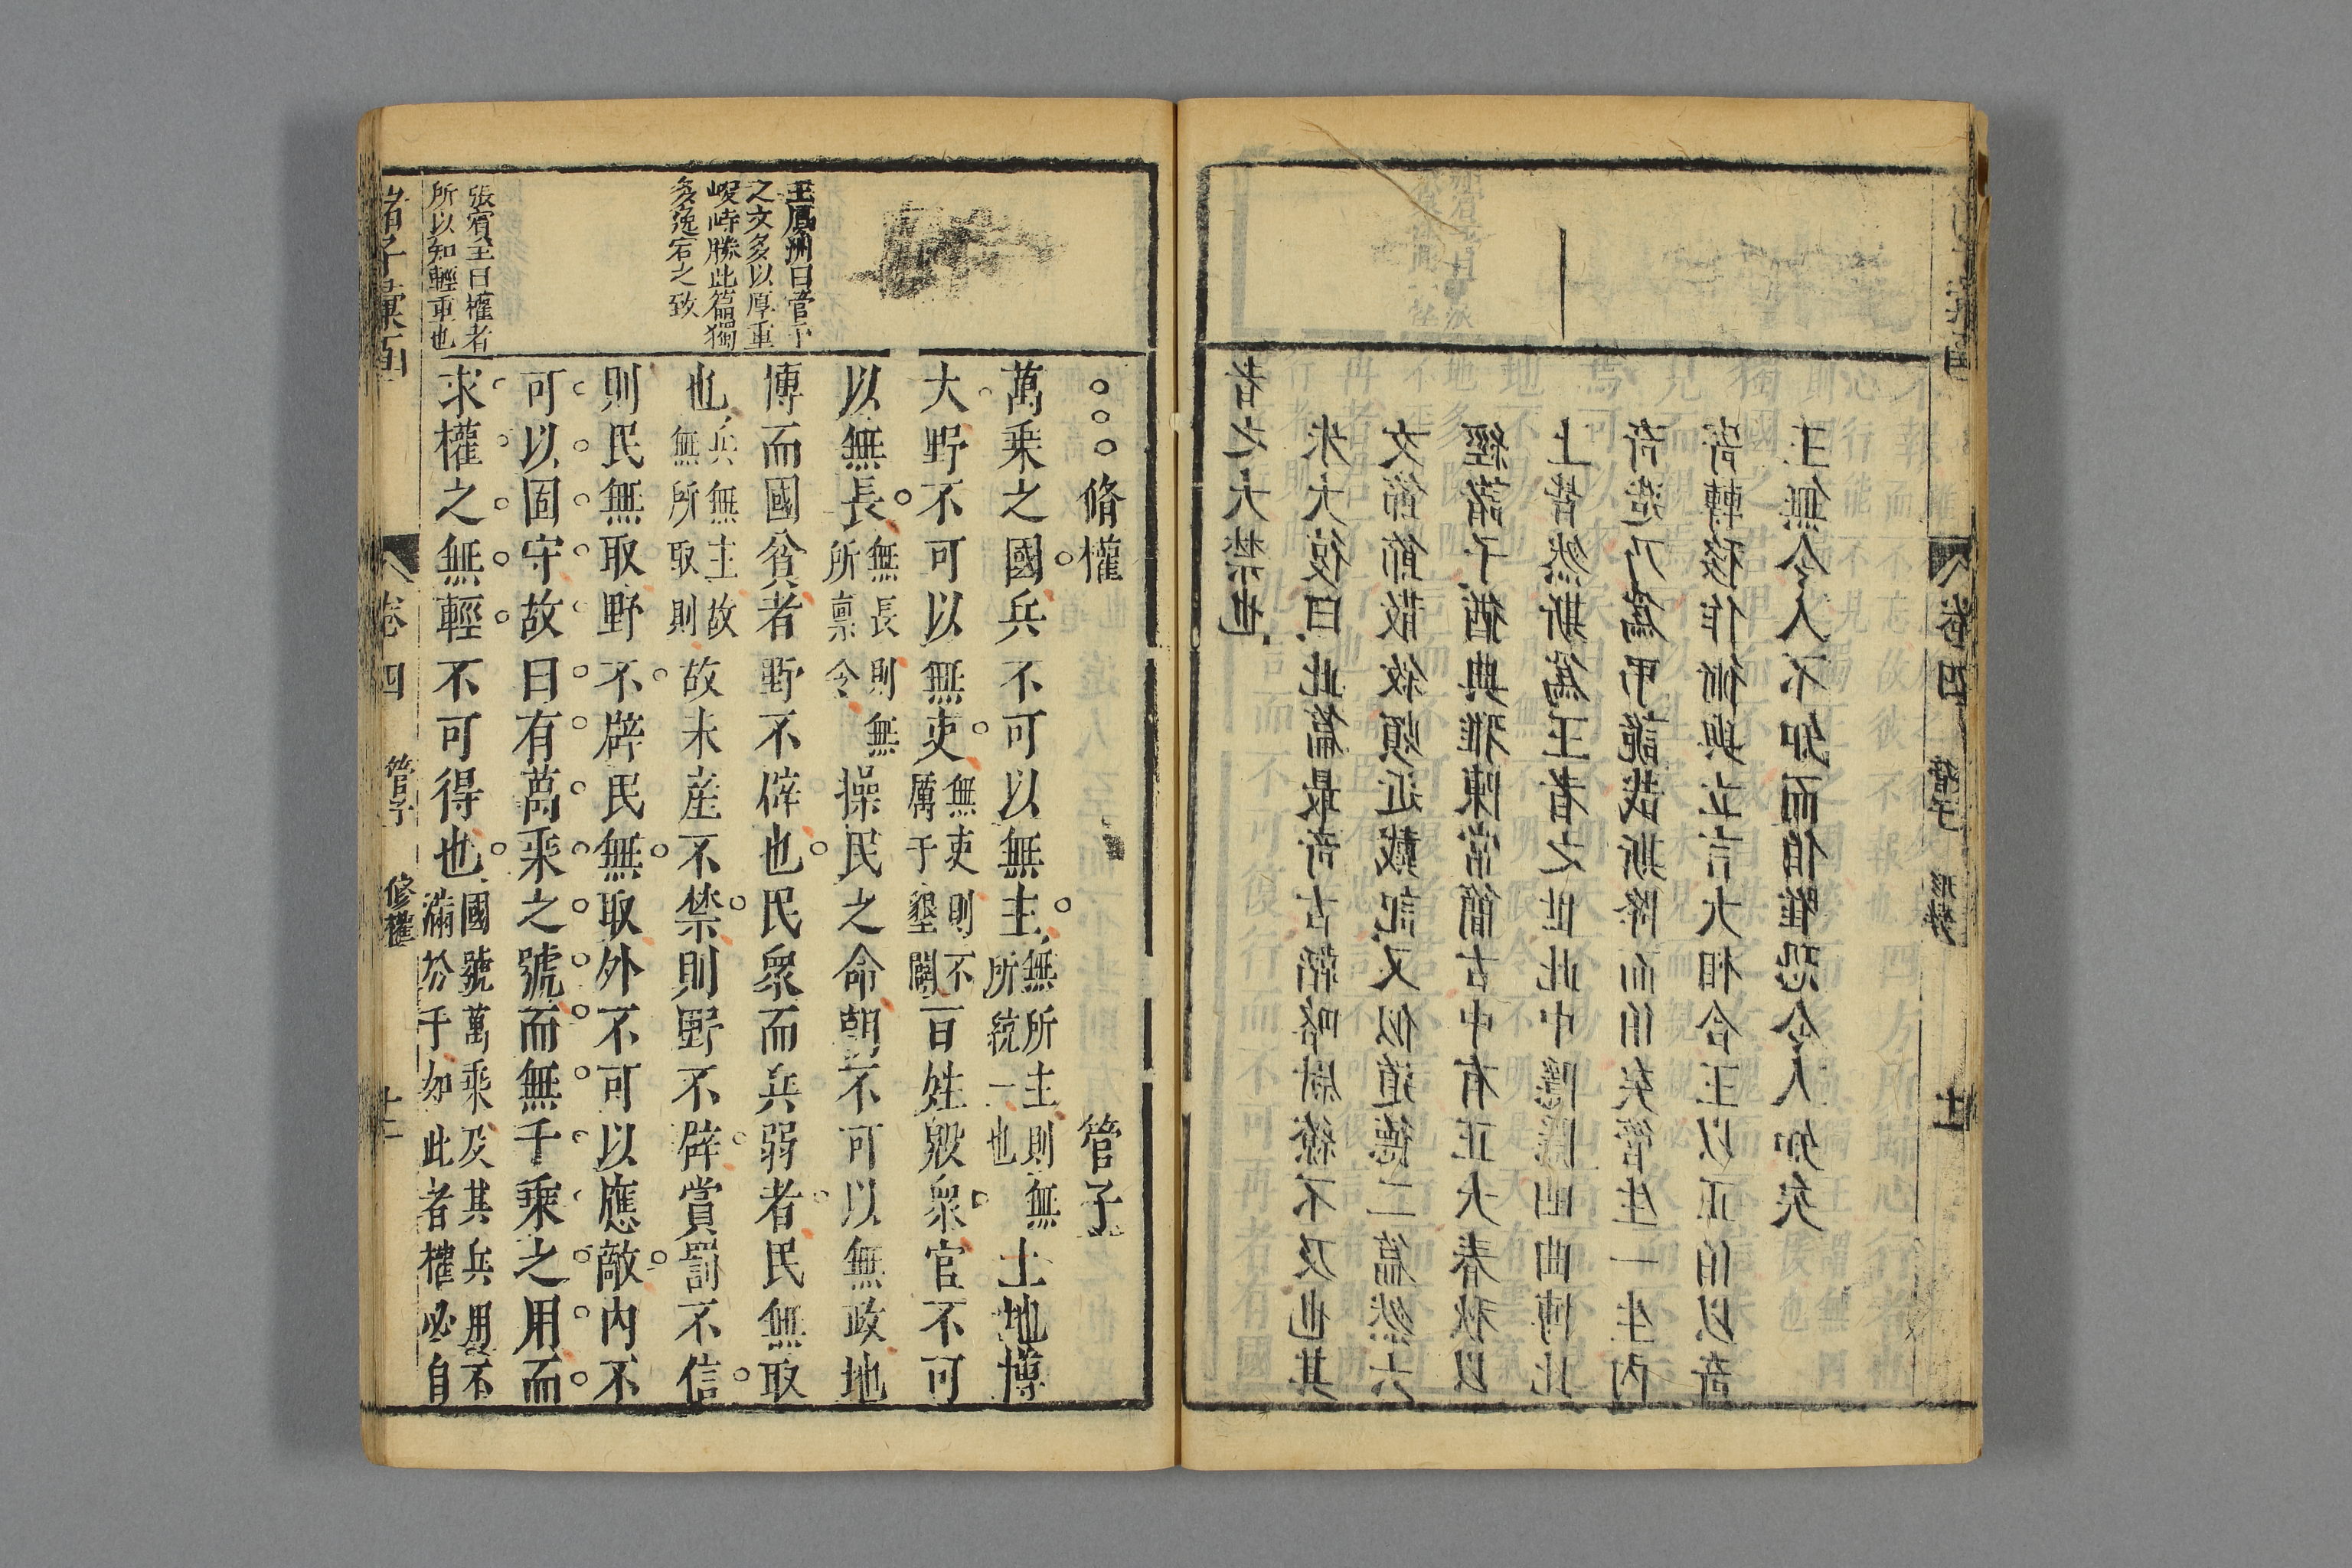 者之大禁也
朱大復曰此篇最奇古韜略尉繚不及也其
文節節散敘頗近戴記又似道德二篇然六
經諸子猶典雅陳常簡古中有正大春秋以
上皆然斯爲王者之世此中隱隱山曲博此
奇造乃爲弔詭哉斯降而伯矣管生一生内
寄轉移作術與立言大相合王以正伯以奇
王無令人不知而伯惟恐令人知矣
卷四 管子
王鳳洲曰管子
之文多以厚重
峻峙勝此篇獨
多逸宕之致
張賓王曰權者
所以知輕重也
脩權 管子
萬乘之國兵不可以無主無所主則無所統一也土地博
大野不可以無吏無吏則不厲于墾闢百姓殷衆官不可
以無長無長則無所禀令操民之命朝不可以無政地
博而國貧者野不僻也民衆而兵弱者民無取
也兵無主故無所取則故末産不禁則野不辟賞罰不信
則民無取野不辟民無取外不可以應敵内不
可以固守故曰有萬乘之號而無千乘之用而
求權之無輕不可得也國號萬乘及其兵用不滿於千如此者權必自
諸子彙函 卷四 管子 修權 十二